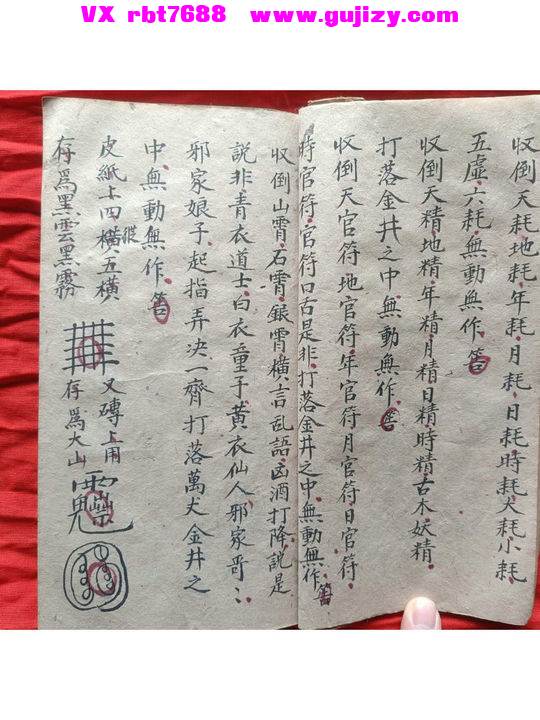 VX rbt7688 www.gujizy.com
収倒天耗地耗年耗月耗日耗時耗大耗小耗
五虛六耗無動無作筶
収倒天精地精年精月精日精時精古木妖精
打落金井之中無動無作筶
収倒天官符地官符年官符月官符日官符
時官符官符口舌是非打落金井之中無動無作筶
収倒山霄石霄銀霄橫言乱語凶酒打降說是
說非青衣道士白衣童子黃衣仙人邪家哥〻
邪家娘子起指弄决一齊打落萬丈金井之
中無動無作筶
皮紙上四橫五橫
縱
又磚上用
存爲黑雲黑霧
存爲大山